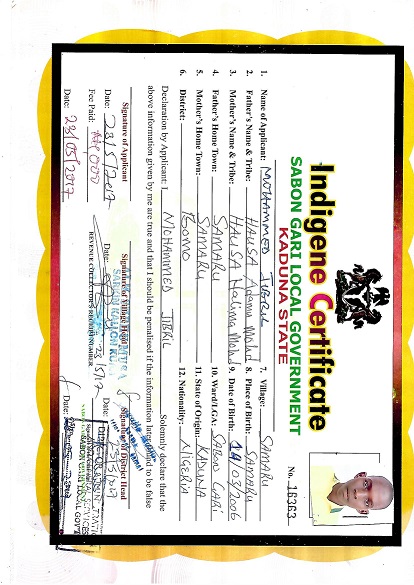 Indigene Certificate
SABON GARI LOCAL GOVERNMENT
KADUNA STATE
No. 16363
1. Name of Applicant: MOHAMMED JIBRIL
2. Father's Name & Tribe: HAUSA Adamu Mohd
3. Mother's Name & Tribe: HAUSA Halima Mohd
4. Father's Home Town: SAMARU
5. Mother's Home Town: SAMARU
6. District: BOMO
7. Village: SAMARU
8. Place of Birth: SAMARU
9. Date of Birth: /03/2006
10. Ward/LGA: SABON GARI
11. State of Origin: KADUNA
12. Nationality: NIGERIA
Declaration by Applicant: I MOHAMMED JIBRIL Solemnly declare that the
above information given by me are true and that I should be penalised if the information later found to be false
Signature of Applicant
Signature of Village Head
Signature of District Head
Date: 23/5/2017
Date:
Fee Paid:
REVENUE COLLECTOR'S RECEIPT NUMBER
Date: 23/05/2017
23/5/17
Date: